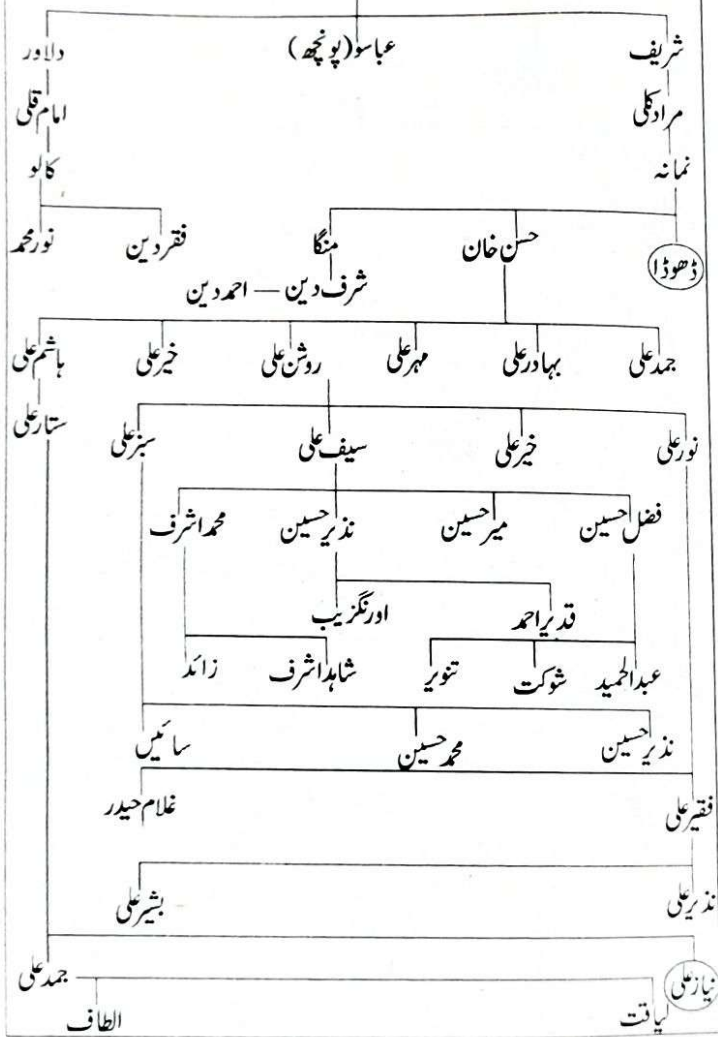 شریف عباسو (پونچھ) دلاور
مراد کلی امام قلی
نمانہ کالو
ڈھوڈا حسن خان منگا فقر دین نور محمد
شرف دین — احمد دین
جمد علی بہادر علی مہر علی روشن علی خیر علی ہاشم علی
ستار علی
نور علی خیر علی سیف علی سبز علی
فضل حسین میر حسین نذیر حسین محمد اشرف
قدیر احمد اورنگزیب
عبدالحمید شوکت تنویر شاہد اشرف زائد
نذیر حسین محمد حسین سائیں
فقیر علی غلام حیدر
نذیر علی بشیر علی
نیاز علی جمد علی
لیاقت الطاف